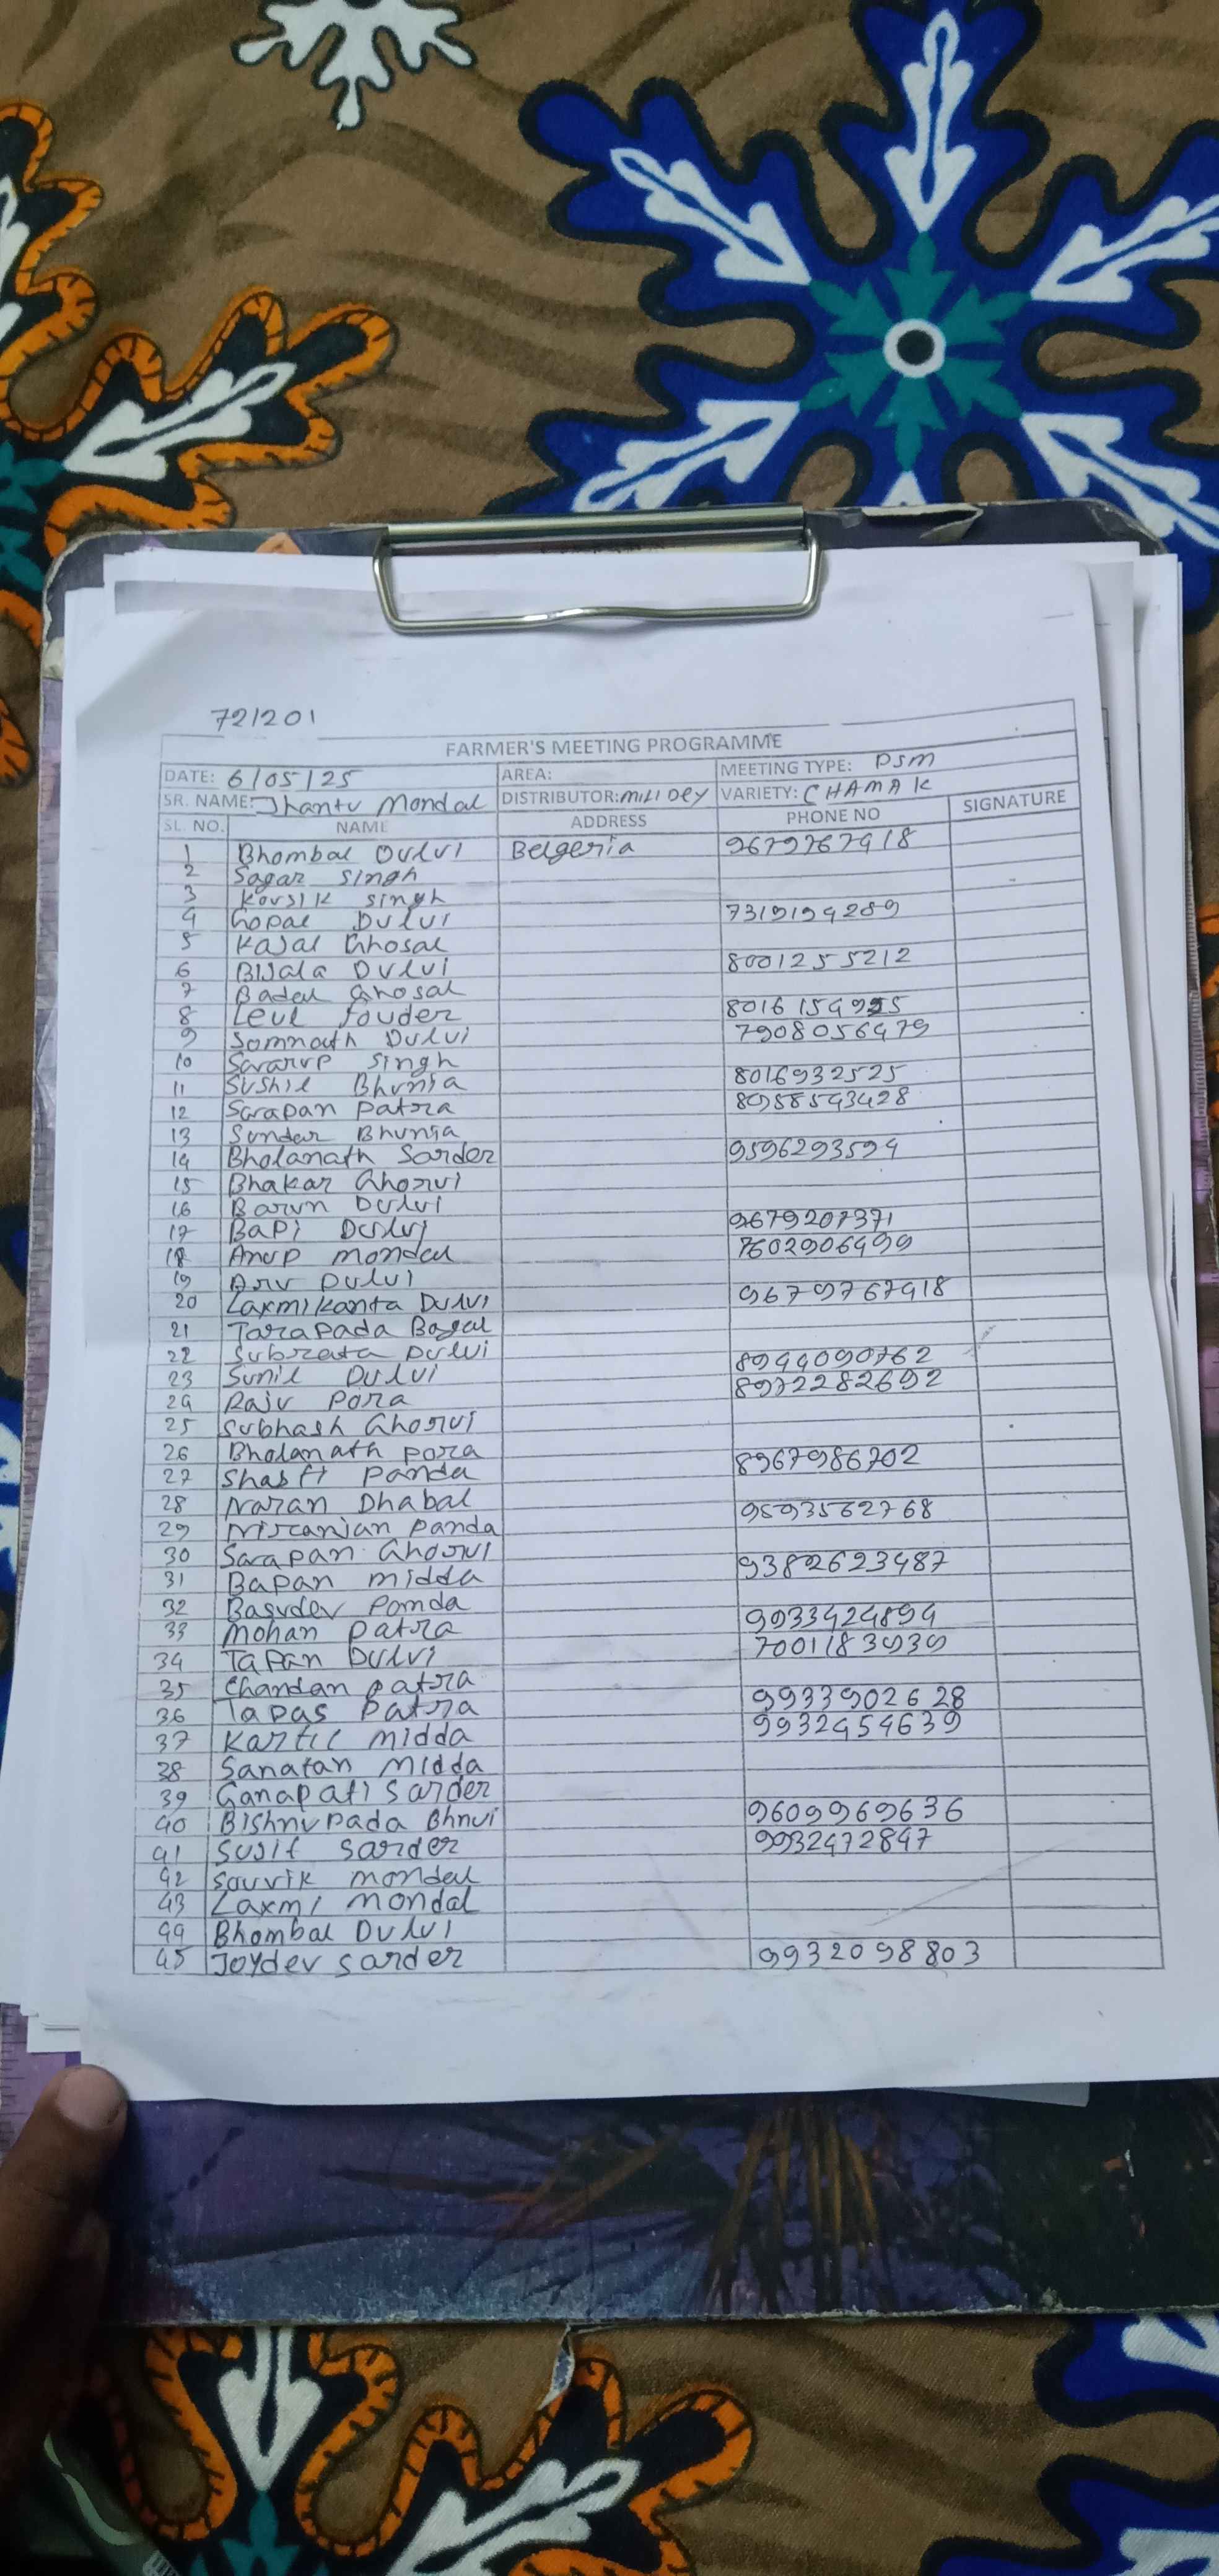 721201
FARMER'S MEETING PROGRAMME
DATE: 6/05/25 AREA: MEETING TYPE: PSM
SR. NAME: Jhantu Mondal DISTRIBUTOR: MILI DEY VARIETY: CHAMAK
SL. NO. NAME ADDRESS PHONE NO SIGNATURE
1 Bhombal Dului Belgeria 9679767418
2 Sagar Singh
3 Kousik Singh
4 Gopal Dului 7319194289
5 Kajal Ghosal
6 Bijala Dului 8001255212
7 Badal Ghosal
8 Leul fouder 8016154925
9 Somnath Dului 7908056479
10 Sararup Singh
11 Sushil Bhunia 8016932525
12 Sarapan patra 8958543428
13 Sundar Bhunia
14 Bholanath Sarder 9596293594
15 Bhakar Ghorui
16 Barun Dului
17 Bapi Dului 9679207371
18 Anup mondal 7602906499
19 Aru Dului
20 Laxmikanta Dului 9679767418
21 Tarapada Bagal
22 Subrata Dului 8944090762
23 Sunil Dului 8972282692
24 Raju Pora
25 Subhash Ghorui
26 Bholanath pora 8967986702
27 Shasti Panda
28 Naran Dhabal 9593562768
29 Niranjan panda
30 Sarapan Ghorui 9382623487
31 Bapan midda
32 Basudev Panda 9933424894
33 Mohan patra 7001183939
34 Tapan Dului
35 Chandan patra 9933902628
36 Tapas Patra 9932454639
37 Kartic midda
38 Sanatan Midda
39 Ganapati Sarder
40 Bishnupada Bhnui 9609969636
41 Sujit Sarder 9932472847
42 Souvik mondal
43 Laxmi Mondal
44 Bhombal Dului
45 Joydev Sarder 9932098803